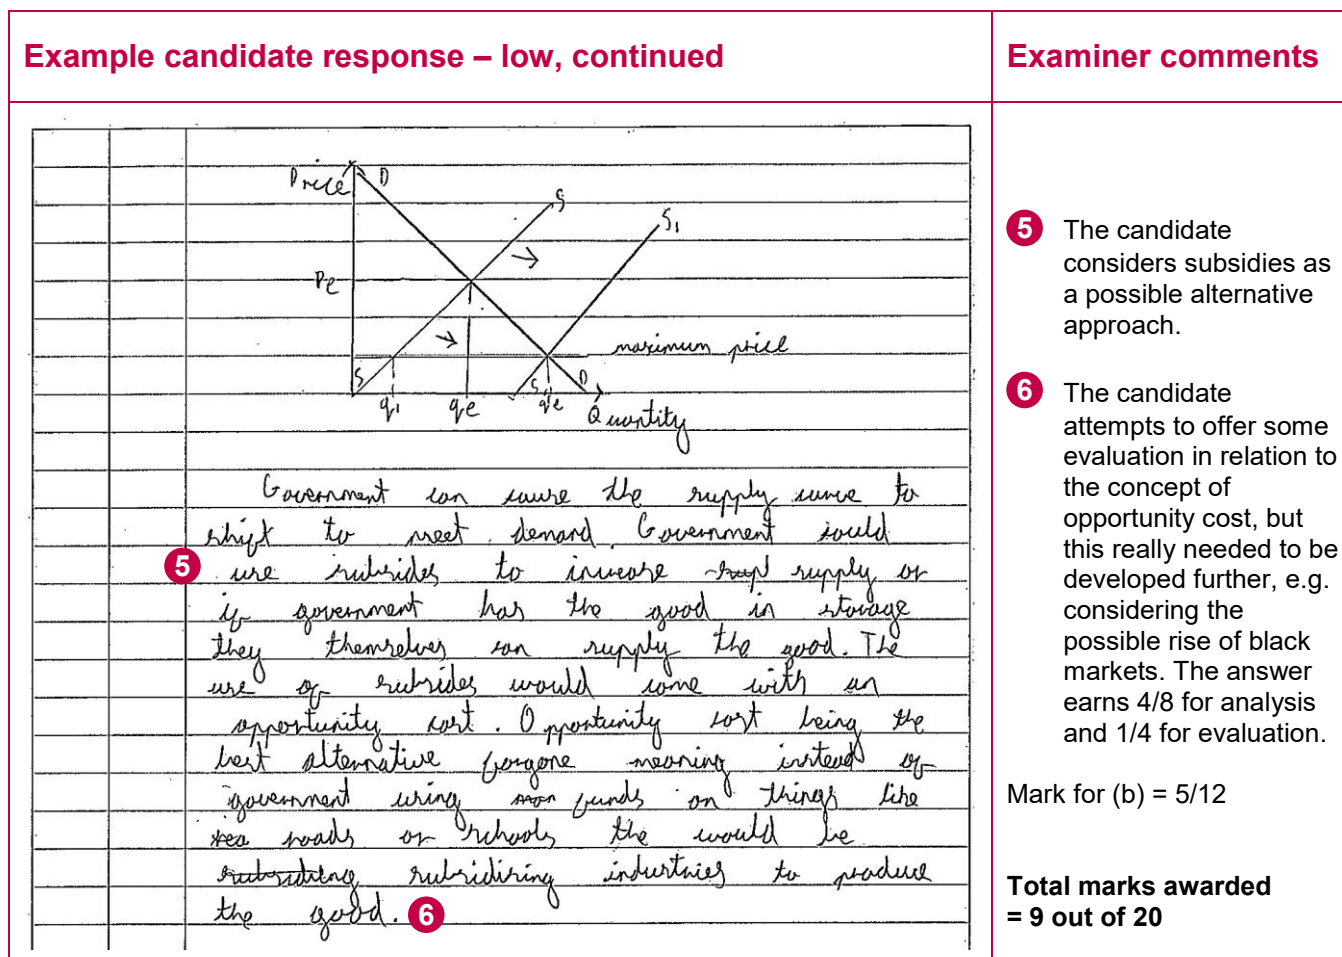 Example candidate response – low, continued
Examiner comments
Price
D
S
S1
Pe
maximum price
S
S
D
q1
qe
q'e
Quantity
Government can cause the supply curve to
shift to meet demand. Government could
5 use subsides to increase supply or
if government has the good in storage
they themselves can supply the good. The
use of subsides would come with an
opportunity cost. Opportunity cost being the
best alternative forgone meaning instead of
government using funds on things like
roads or schools the would be
subsidising industries to produce
the good. 6
5 The candidate
considers subsidies as
a possible alternative
approach.
6 The candidate
attempts to offer some
evaluation in relation to
the concept of
opportunity cost, but
this really needed to be
developed further, e.g.
considering the
possible rise of black
markets. The answer
earns 4/8 for analysis
and 1/4 for evaluation.
Mark for (b) = 5/12
Total marks awarded
= 9 out of 20